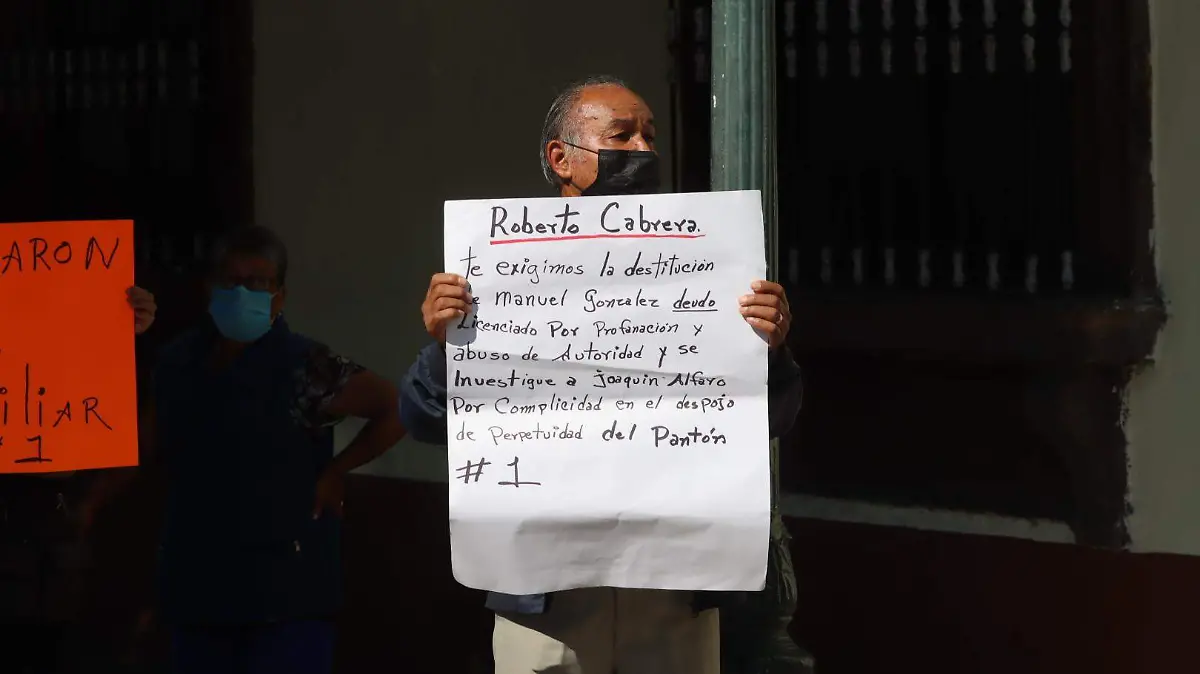 ARON
iliAR
#1
Roberto Cabrera.
te exigimos la destitución
de Manuel Gonzalez deudo
Licenciado Por Profanación y
abuso de Autoridad y se
Investigue a Joaquin Alfaro
Por Complicidad en el despojo
de Perpetuidad del Pantón
#1